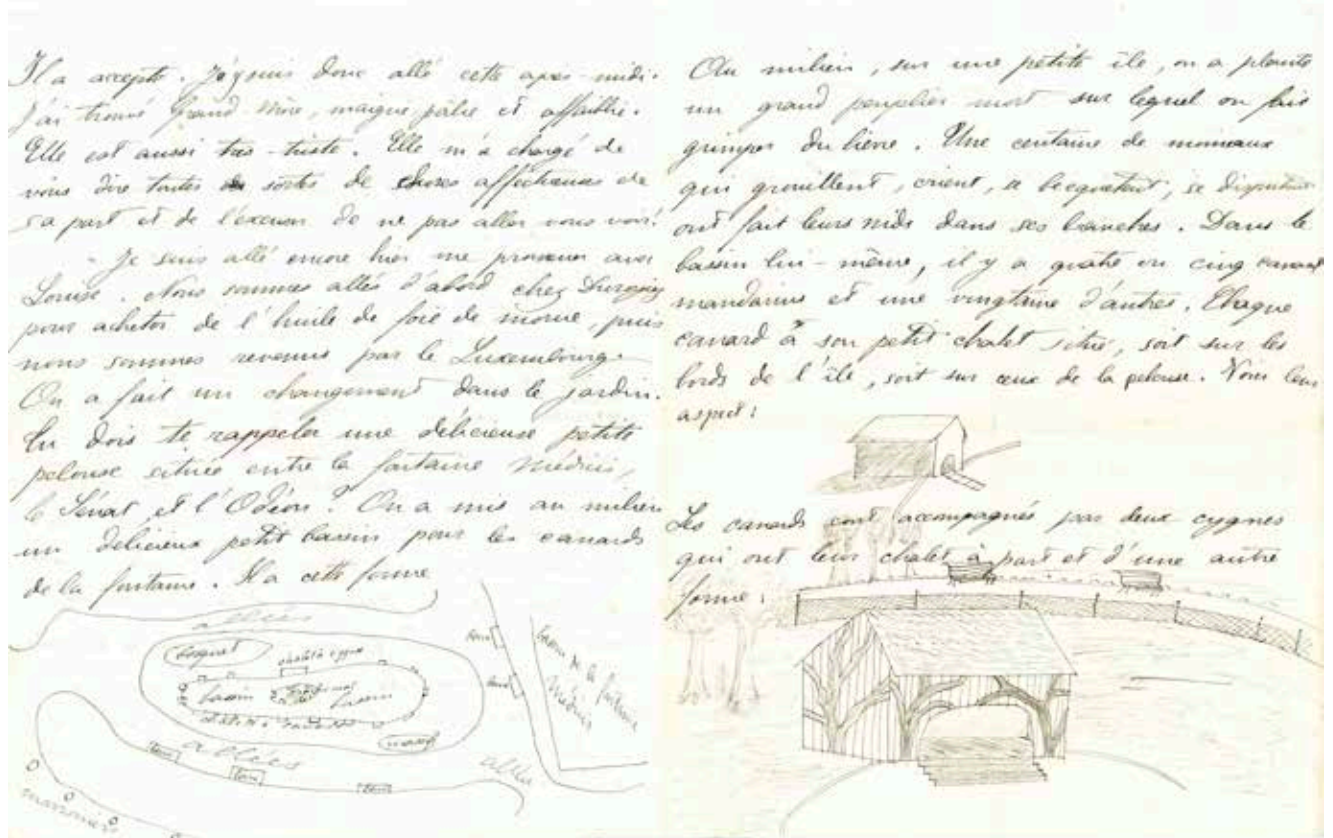 Il a accepté. J'y suis donc allé cette après-midi.
J'ai trouvé Grand-Mère, maigre, pâlie et affaiblie.
Elle est aussi très-triste. Elle m'a chargé de
vous dire toutes sortes de choses affectueuses de
sa part et de l'excuser de ne pas aller vous voir.
- Je suis allé encore hier me promener avec
Louise. Nous sommes allés d'abord chez
pour acheter de l'huile de foie de morue, puis
nous sommes revenus par le Luxembourg.
On a fait un changement dans le jardin.
Tu dois te rappeler une délicieuse petite
pelouse située entre la fontaine Médicis,
le Sénat, et l'Odéon ? On a mis au milieu
un délicieux petit bassin pour les canards
de la fontaine. Il a cette forme
allées
bosquet
chalet à cygnes
bassin
bassin
chalets à canards
massif
allées
banc
banc
banc
allée
marronniers
banc
banc
bassin de la fontaine
Médicis
Au milieu, sur une petite île, on a planté
un grand peuplier mort sur lequel on fait
grimper du lierre. Une centaine de moineaux
qui grouillent, crient, se becquetent, se disputent
ont fait leurs nids dans ses branches. Dans le
bassin lui-même, il y a quatre ou cinq canards
mandarins et une vingtaine d'autres. Chaque
canard à son petit chalet situé, soit sur les
bords de l'île, soit sur ceux de la pelouse. Voici leur
aspect :
Les canards sont accompagnés par deux cygnes
qui ont leur chalet à part et d'une autre
forme :